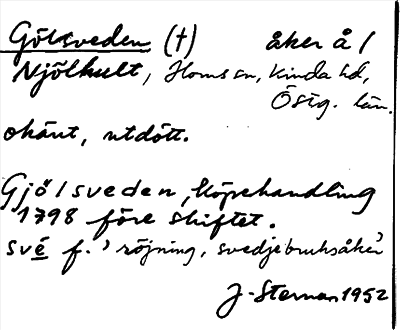 Gölsveden (†) åker å /
Njölhult, Horns sn, Kinda hd,
Östg. län.
okänt, utdött.
Gjölsveden, köpehandling
1798 före skiftet.
své f. ’röjning, svedjebruksåker’
J. Sterner 1952